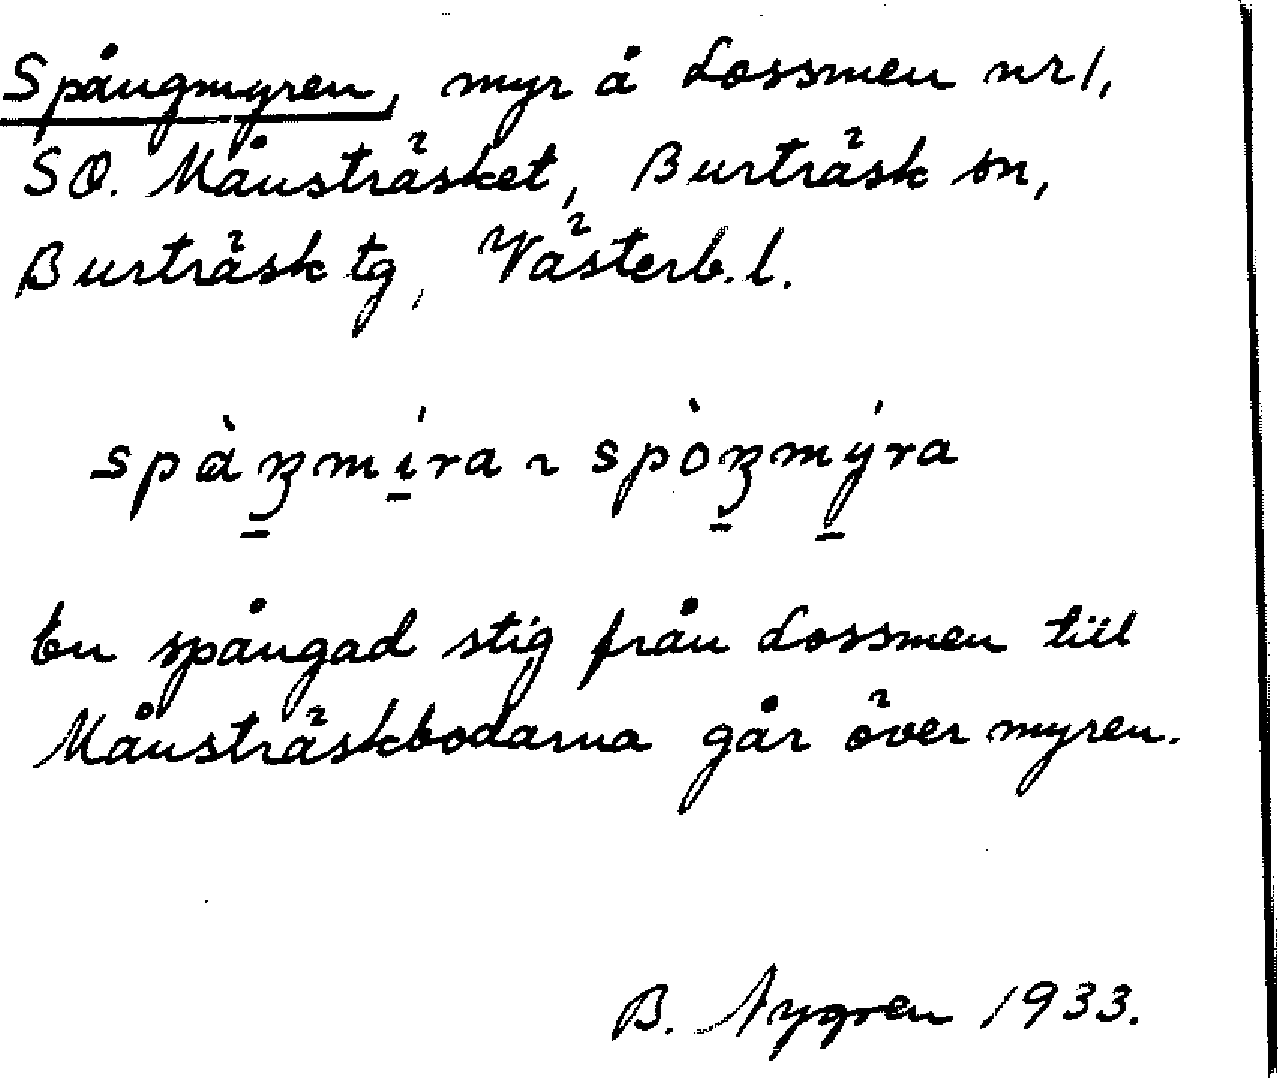 Spångmyren, myr å Lossmen nr 1,
SO. Månsträsket, Burträsk sn,
Burträsk tg, Västerb. l.
En spångad stig från Lossmen till
Månsträskbodarna går över myren.
B. Nygren 1933.